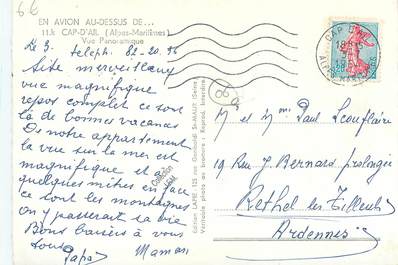 6€
EN AVION AU-DESSUS DE...
11.k CAP-D'AIL (Alpes-Maritimes)
Vue Panoramique
Le 3. téléph. 82-20.96
Site merveilleux
vue magnifique
repos complet ce sont
là de bonnes vacances
De notre appartement
la vue sur la mer est
magnifique et à
quelques mètres en face
ce sont les montagnes
on y passerait sa vie
Bons baisers à vous
tous
Papa Maman
Edition LAPIE, 125 rue Garibaldi St-MAUR (Seine)
Véritable photo au bromure - Reprod. Interdite
CAP D'AIL
M et Mme Paul
19 Rue J. Bernard prolongée
Rethel les Tilleuls
Ardennes